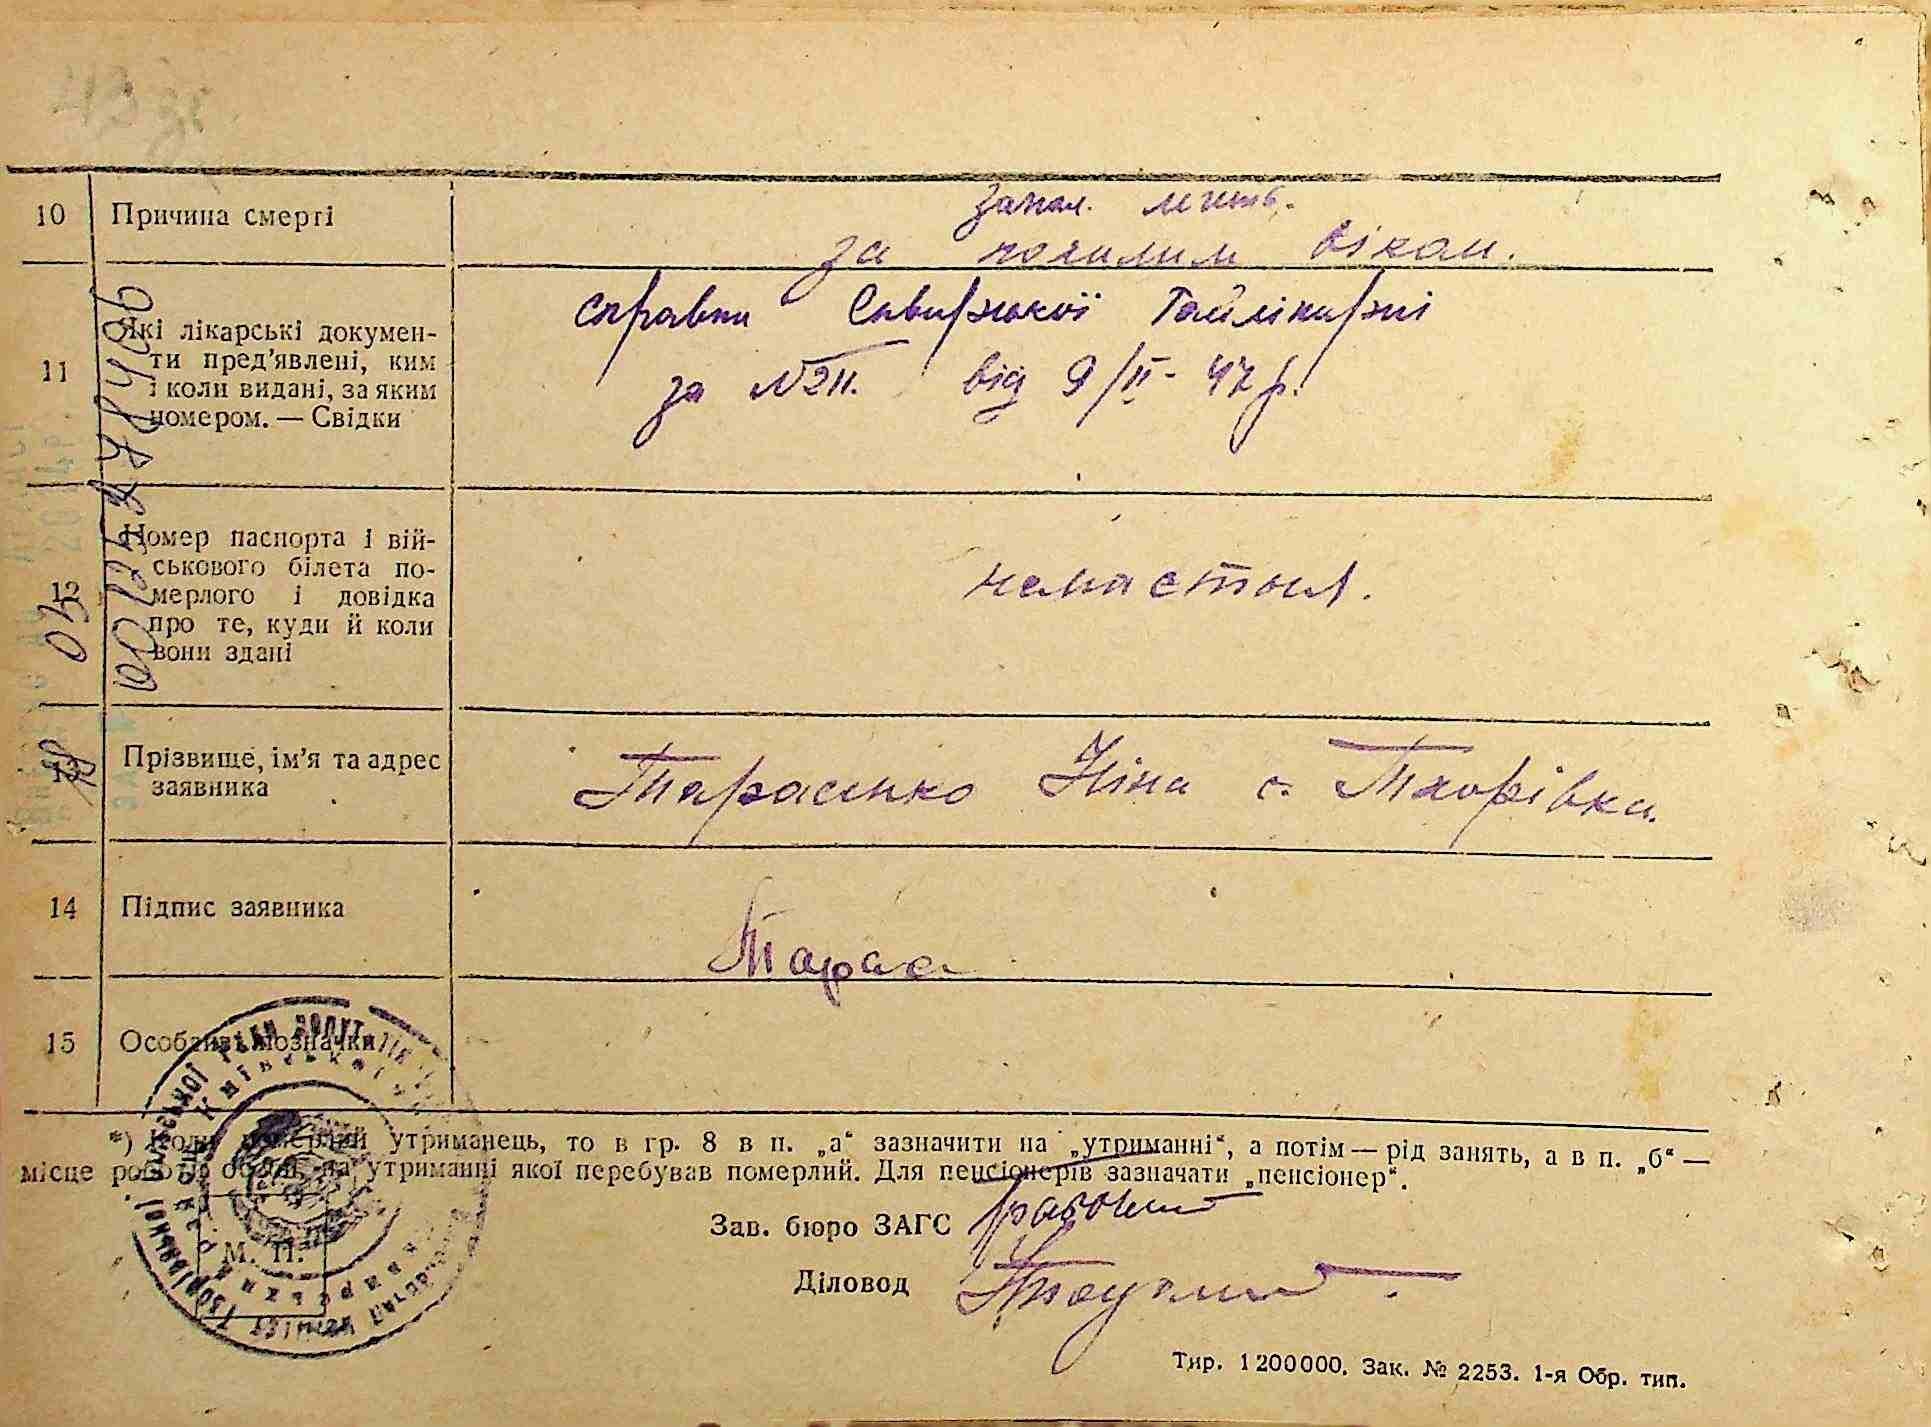 10 Причина смерті
запал. легень.
за похилим віком.
11 Які лікарські докумен-
ти пред'явлені, ким
і коли видані, за яким
номером. — Свідки
справка Сквирської Райлікарні
за №211. від 9/II - 47 р.
12 Номер паспорта і вій-
ськового білета по-
мерлого і довідка
про те, куди й коли
вони здані
13 Прізвище, ім'я та адрес
заявника
Тарасенко Ніна с. Тхорівка.
14 Підпис заявника
Тарас
15 Особливі позначки
*) Коли померлий утриманець, то в гр. 8 в п. „а“ зазначити на „утриманні“, а потім — рід занять, а в п. „б“ —
місце роботи особи, на утриманні якої перебував померлий. Для пенсіонерів зазначати „пенсіонер“.
М. П.
Зав. бюро ЗАГС
Діловод
Тир. 1 200 000. Зак. № 2253. 1-я Обр. тип.